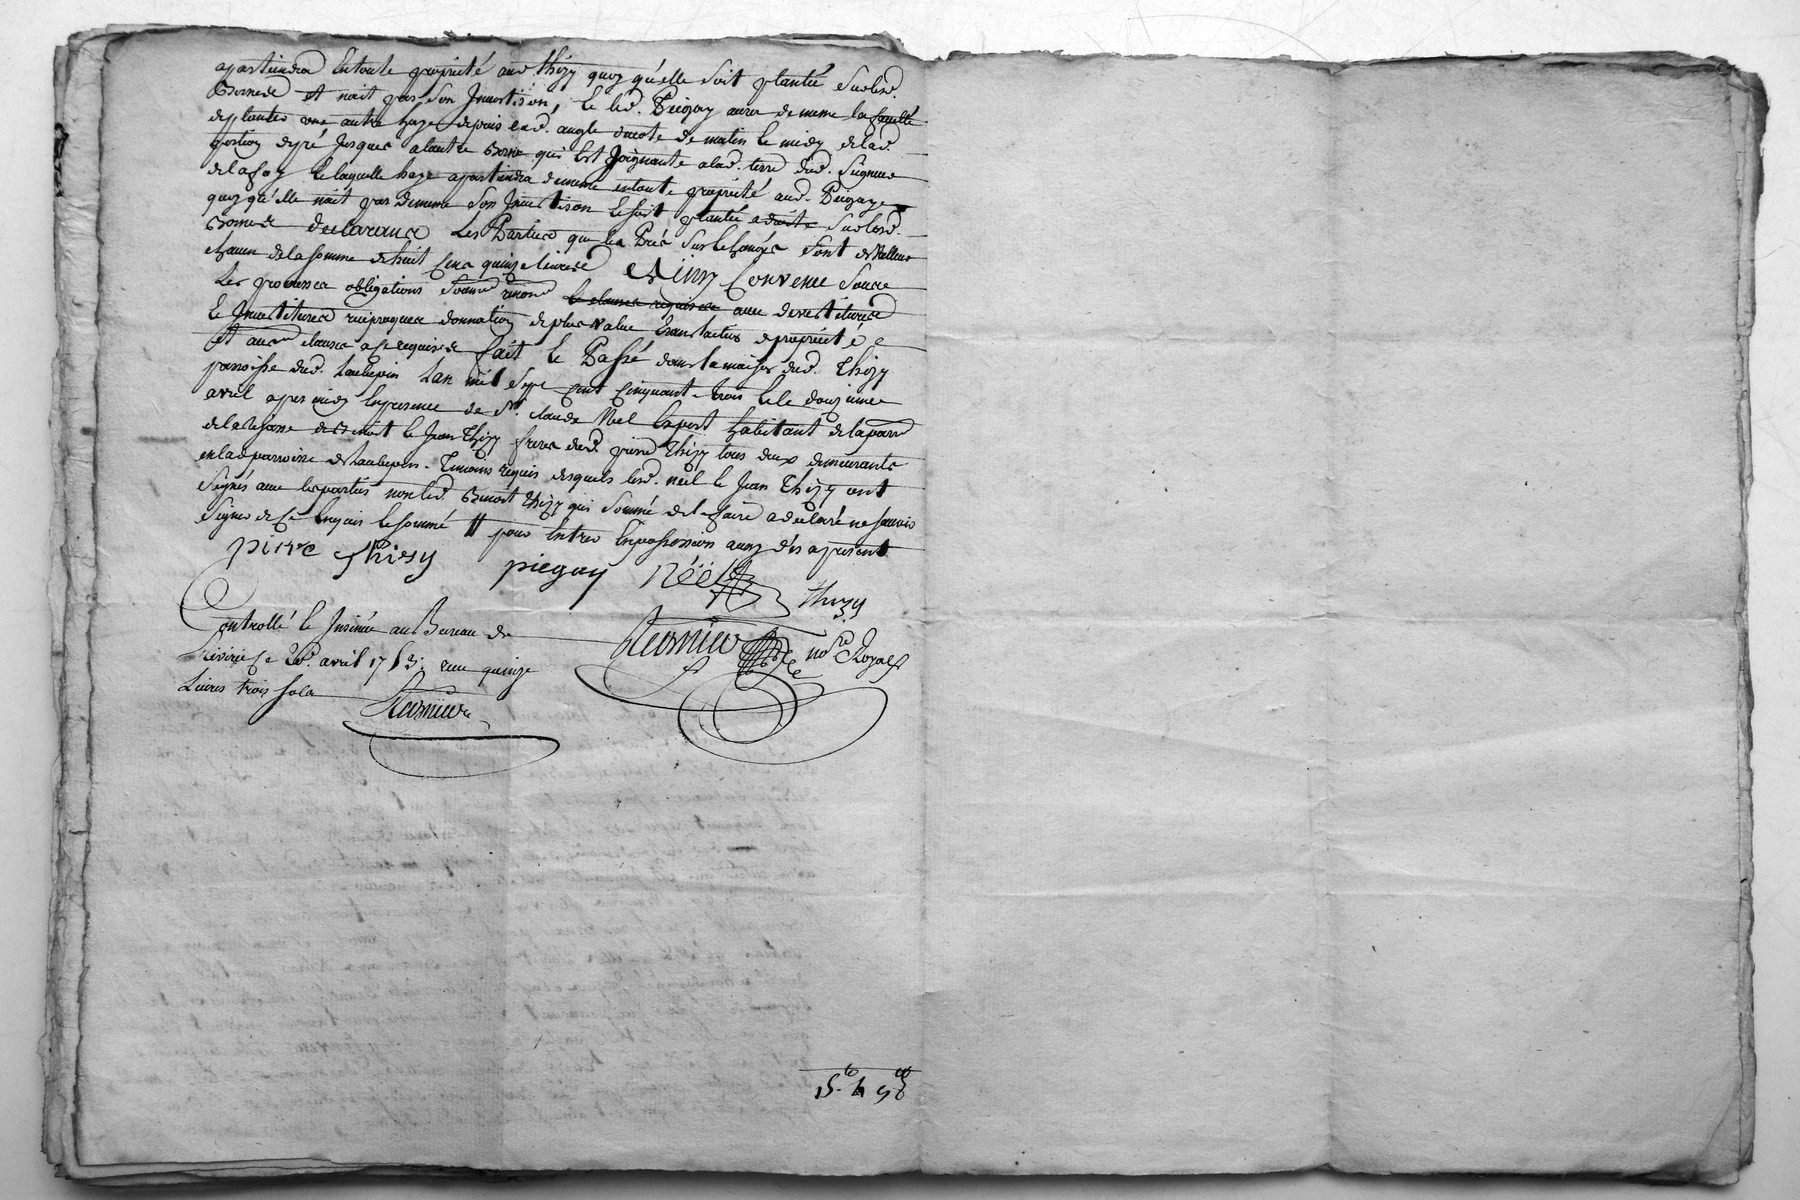 apartiendra en toute proprieté aud. thizy quoy qu'elle soit plantée sur lesd.
Bornes et nait pas son Invertison, Et led. Piégay aura de meme la faculté
de planter une autre haye depuis lad. angle du coté de matin le midy de lad.
portion de pré jusques a lautre Borne qui Est Joignante a lad. terre dud. Seigneur
de lafay Et laquelle haye apartiendra de meme en toute proprieté aud. Piegay
quoy qu'elle nait pas de meme son Invertison Et soit plantée a droite sur lesd.
Bornes declarants Les Parties que les Prés sur Echangés sont de valleur
chacun de la somme de huit Cent quinze livres Ainsy Convenu sous
Les promesses obligations soumis. renon. et clauses requises avec devestitures
Et Investitures reciproques donnation de plus value translation de proprieté
Et autres clauses a ce requises fait Et Passé dans la maison dud. Thizy
parroisse dud. Laubepin Lan mil sept Cent Cinquante trois Et le douzieme
avril apres midy En presence de Sr. Claude Néel Expert habitant de la parr.
de et Jean Thizy freres dud. pierre Thizy tous deux demeurants
en lad. parroisse de Laubepin. Temoins requis desquels lesd. néel Et Jean Thizy ont
signés avec les parties non led. Benoit Thizy qui sommé de le faire a declaré ne sçavoir
signer de Ce Enquis Et sommé // pour Entrer En possession aussy dés apresent
pierre thisy piegay Néel
Thizy
Controllé Et Insinué au Bureau de
not. Royal
Ce 20e. avril 1753. reçu quinze
Livres trois sols
15. 4 98